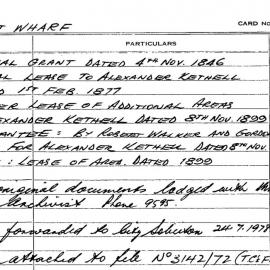 T WHARF
CARD NO
PARTICULARS
AL GRANT DATED 4TH NOV. 1846
AL LEASE TO ALEXANDER KETHELL
D 1ST FEB. 1877
ER LEASE OF ADDITIONAL AREAS
EXANDER KETHELL DATED 8TH NOV. 1899
ANTEE: BY ROBERT WALKER AND GORDON
FOR ALEXANDER KETHELL DATED 8TH NOV.
: LEASE OF AREA. DATED 1899
original documents lodged with the
Archivist Phone 9595.
forwarded to City Solicitor 24.7.1978
attached to file No 3142/72 (TCLF